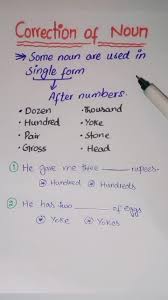 Correction of Noun
Some noun are used in
single form
After numbers.
• Dozen • Thousand
• Hundred • Yoke
• Pair • Stone
• Gross • Head
1 He gave me three ___ rupees.
Hundred Hundreds
2 He has two ___ of eggs
Yoke Yokes